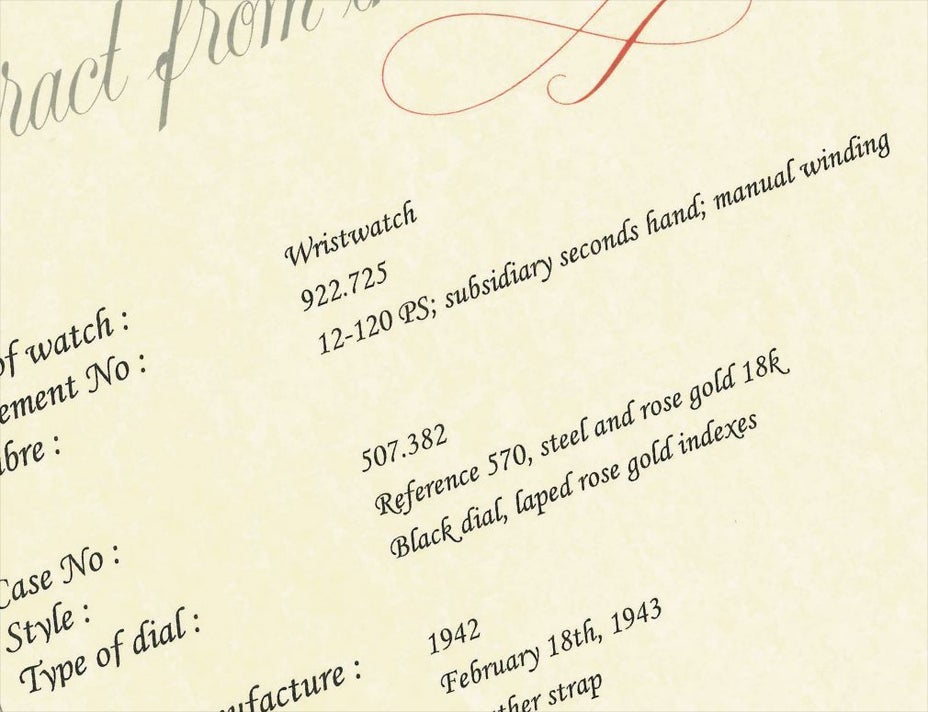 from
of watch : Wristwatch
No : 922.725
12-120 PS; subsidiary seconds hand; manual winding
Case No : 507.382
Style : Reference 570, steel and rose gold 18k
Type of dial : Black dial, laped rose gold indexes
1942
February 18th, 1943
strap